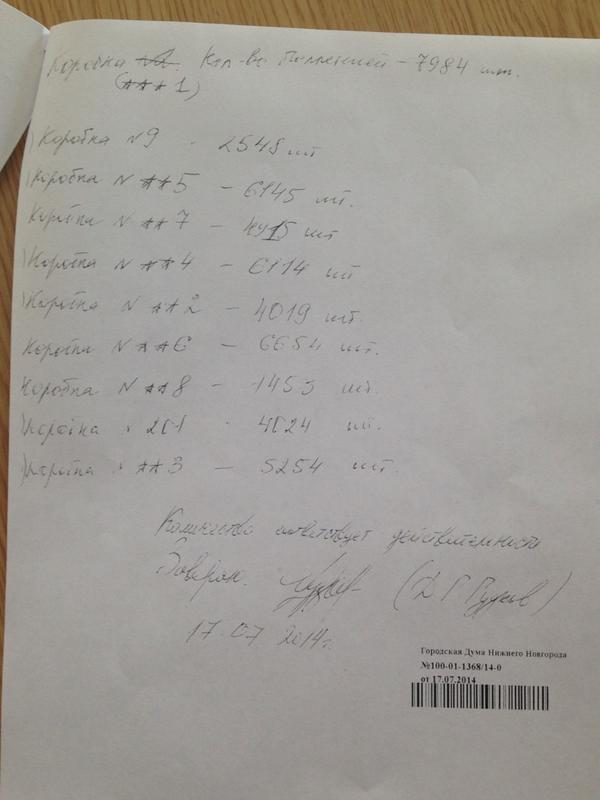 Коробка Кол-во бюллетеней - 7984 шт.
(**1)
Коробка N9 - 2548 шт
Коробка N **5 - 6145 шт.
Коробка N **7 - шт
Коробка N **4 - 6114 шт
Коробка N **2 - 4019 шт.
Коробка N **6 - 6654 шт.
Коробка N **8 - 1453 шт.
Коробка 201 - 4024 шт.
Коробка **3 - 5254 шт.
Количество соответствует действительности
Доверен. (Д Г Гудков)
17.07 2014г.
Городская Дума Нижнего Новгорода
№100-01-1368/14-0
от 17.07.2014